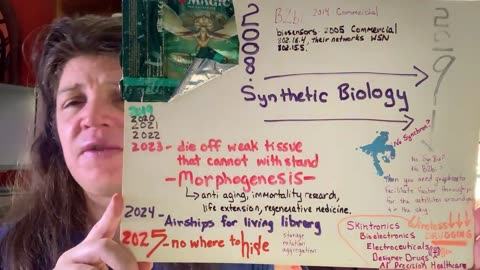 MAGIC
2008
BioBi 2014 Commercial
biosensors 2005 Commercial
802.16.4, their networks WSN
802.15.5.
Synthetic Biology
2019
2020
2021
2022
2023- die off weak tissue
that cannot withstand
-Morphogenesis-
anti aging, immortality research,
life extension, regenerative medicine.
2024- Airships for living library
2025- no where to hide
storage
mutation
aggregation
No Synchro?
No Syn Bio?
No BioBi?
Then you need
facilitate
for the satellites around
in the sky
Skintronics
Bioelectronics
Electroceuticals
Designer Drugs
AI Precision Healthcare